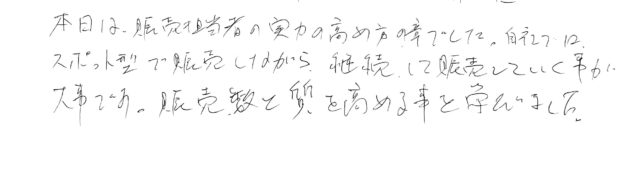 本日は、販売担当者の実力の高め方の章でした。自社では
スポット型で販売しながら、継続して販売していく事が
大事であり、販売数と質を高める事を学びました。